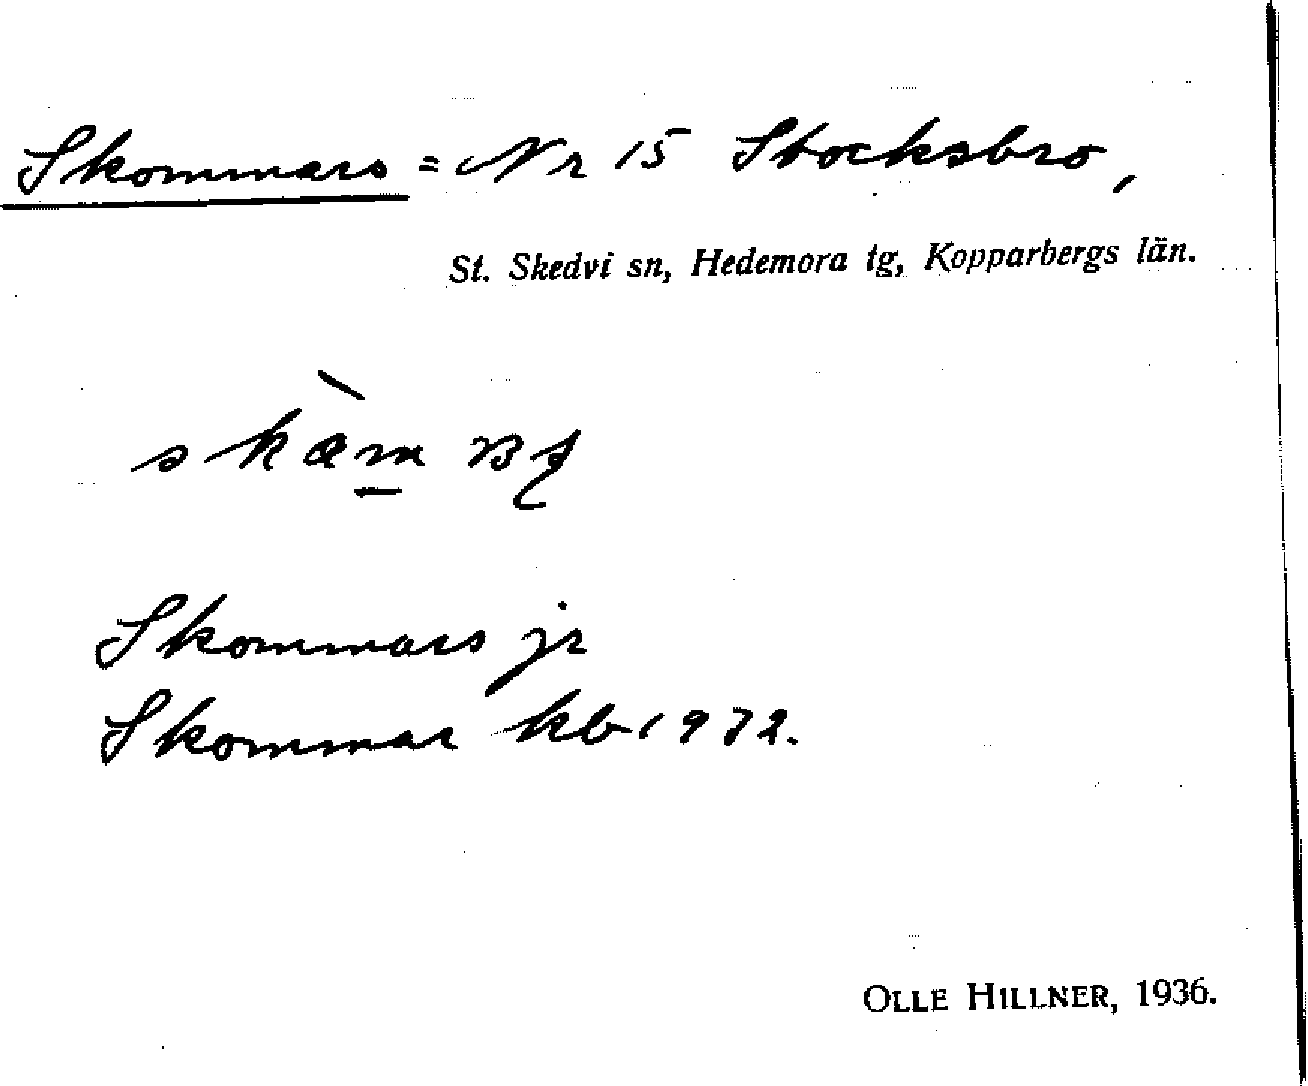 Skommars = Nr 15 Stocksbro,
St. Skedvi sn, Hedemora tg, Kopparbergs län.
Skommars jr
Skommar kb 1932.
OLLE HILLNER, 1936.